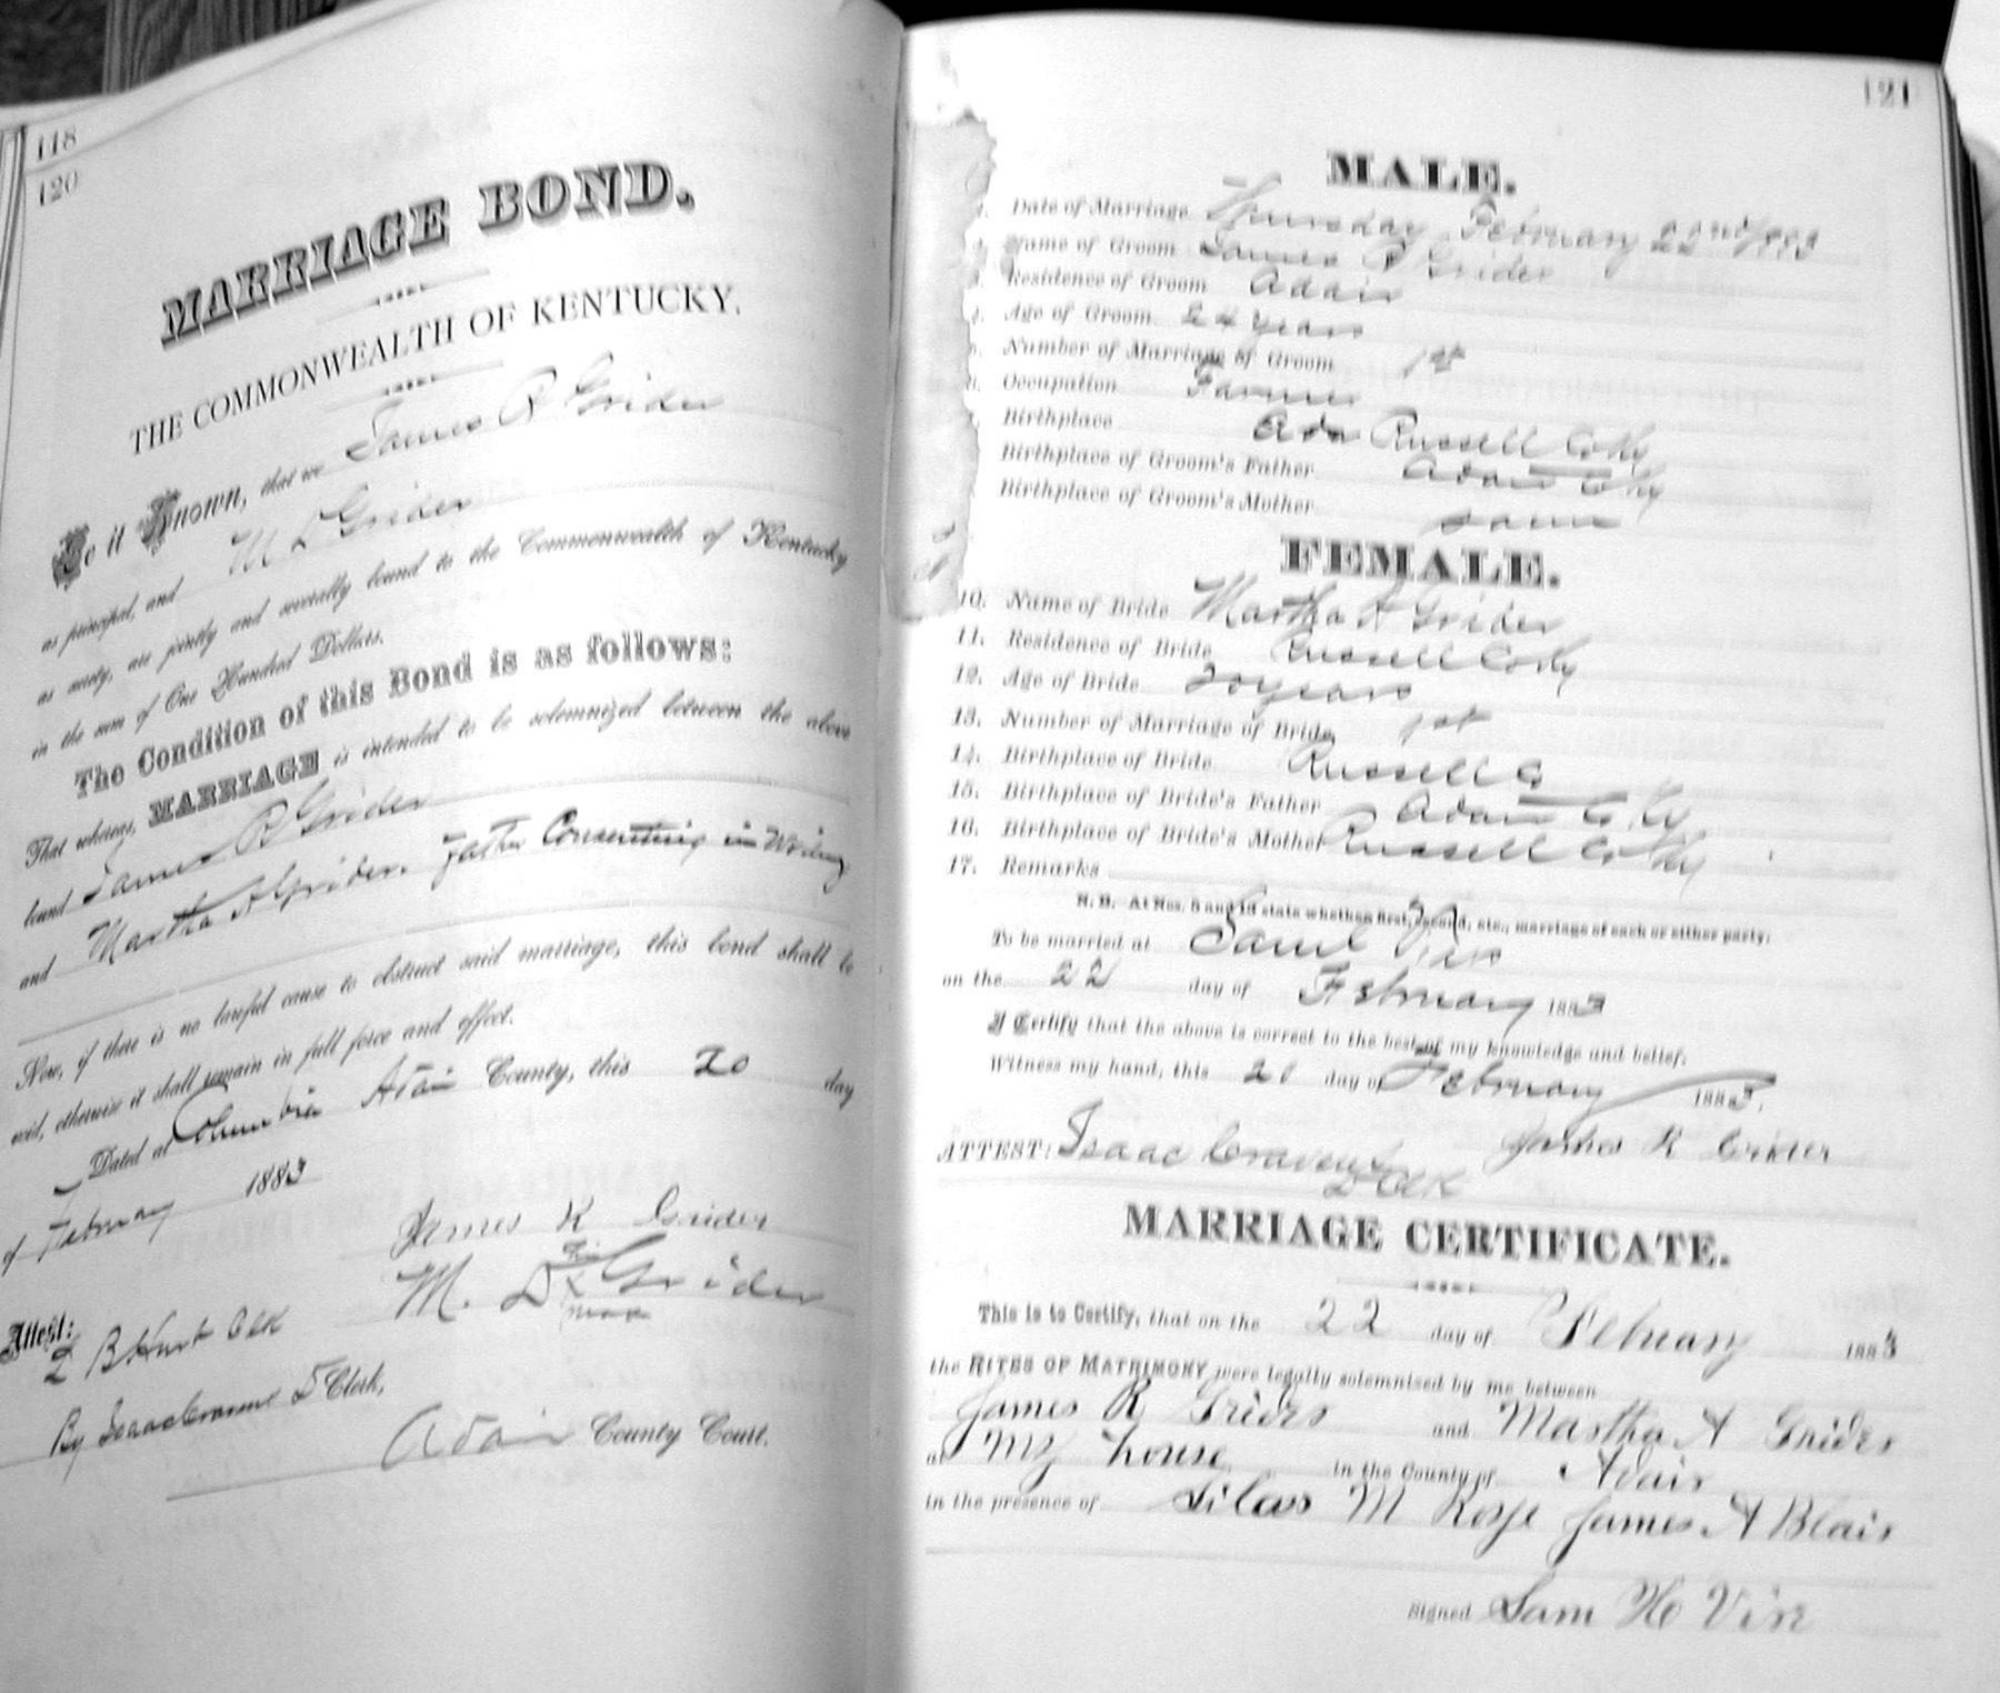 118
120
MARRIAGE BOND.
THE COMMONWEALTH OF KENTUCKY.
Be it Known, that we James R Grider
as principal, and M D Grider
as surety, are jointly and severally bound to the Commonwealth of Kentucky
in the sum of One Hundred Dollars.
The Condition of this Bond is as follows:
That whereas, MARRIAGE is intended to be solemnized between the above
bound James R Grider
and Martha A Grider. Father Consenting in Writing
Now, if there is no lawful cause to obstruct said marriage, this bond shall be
void, otherwise it shall remain in full force and effect.
Dated at Columbia Adair County, this 20 day
of February 1883
James R Grider
his
M. D x Grider
mark
Attest:
B Hurt Clk
By Isaac Cravens D Clerk,
Adair County Court.
121
MALE.
Date of Marriage Thursday February 22nd 1883
Name of Groom James R Grider
Residence of Groom Adair
Age of Groom 24 years
Number of Marriage of Groom 1st
Occupation Farmer
Birthplace Ada Russell Co Ky
Birthplace of Groom's Father Adair Co Ky
Birthplace of Groom's Mother same
FEMALE.
10. Name of Bride Martha A Grider
11. Residence of Bride Russell Co Ky
12. Age of Bride 20 years
13. Number of Marriage of Bride 1st
14. Birthplace of Bride Russell C
15. Birthplace of Bride's Father Adair Co Ky
16. Birthplace of Bride's Mother Russell Co Ky
17. Remarks
N. B. At Nos. 5 and 13 state whether first, second, etc., marriage of each or either party.
To be married at Saml
on the 22 day of February 1883
I Certify that the above is correct to the best of my knowledge and belief.
Witness my hand, this 20 day of February 1883.
ATTEST: Isaac Cravens James R Grider
D Clk
MARRIAGE CERTIFICATE.
This is to Certify, that on the 22 day of February 1883
the RITES OF MATRIMONY were legally solemnized by me between
James R Grider and Martha A Grider
at My house in the County of Adair
in the presence of Silas M Rose James A Blair
Signed Sam H Vire